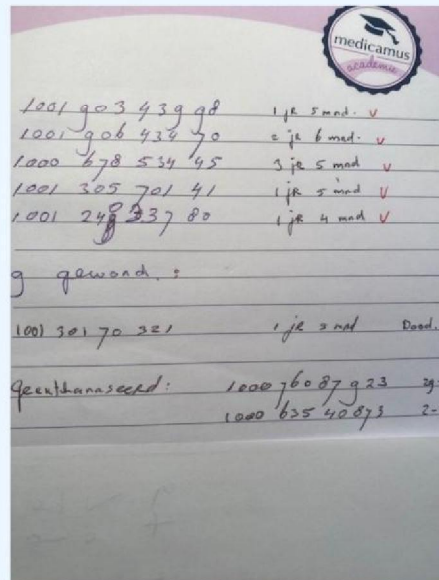 medicamus
academie
1001 903 439 98 1 jr 5 mnd. v
1001 906 434 70 2 jr 6 mnd. v
1000 678 534 45 3 jr 5 mnd v
1001 305 701 41 1 jr 5 mnd v
1001 337 80 1 jr 4 mnd v
gewond. :
1001 301 70 321 1 jr mnd Dood.
Geeuthanaseerd: 1000 76087 923
1000 635 40873